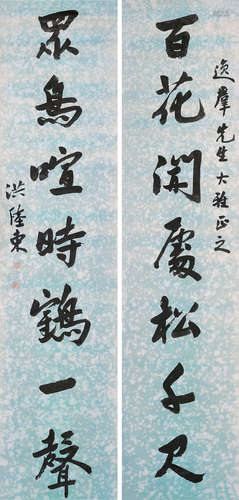 逸群先生大雅正之
百花開處松千尺
眾鳥喧時鶴一聲
洪陸東